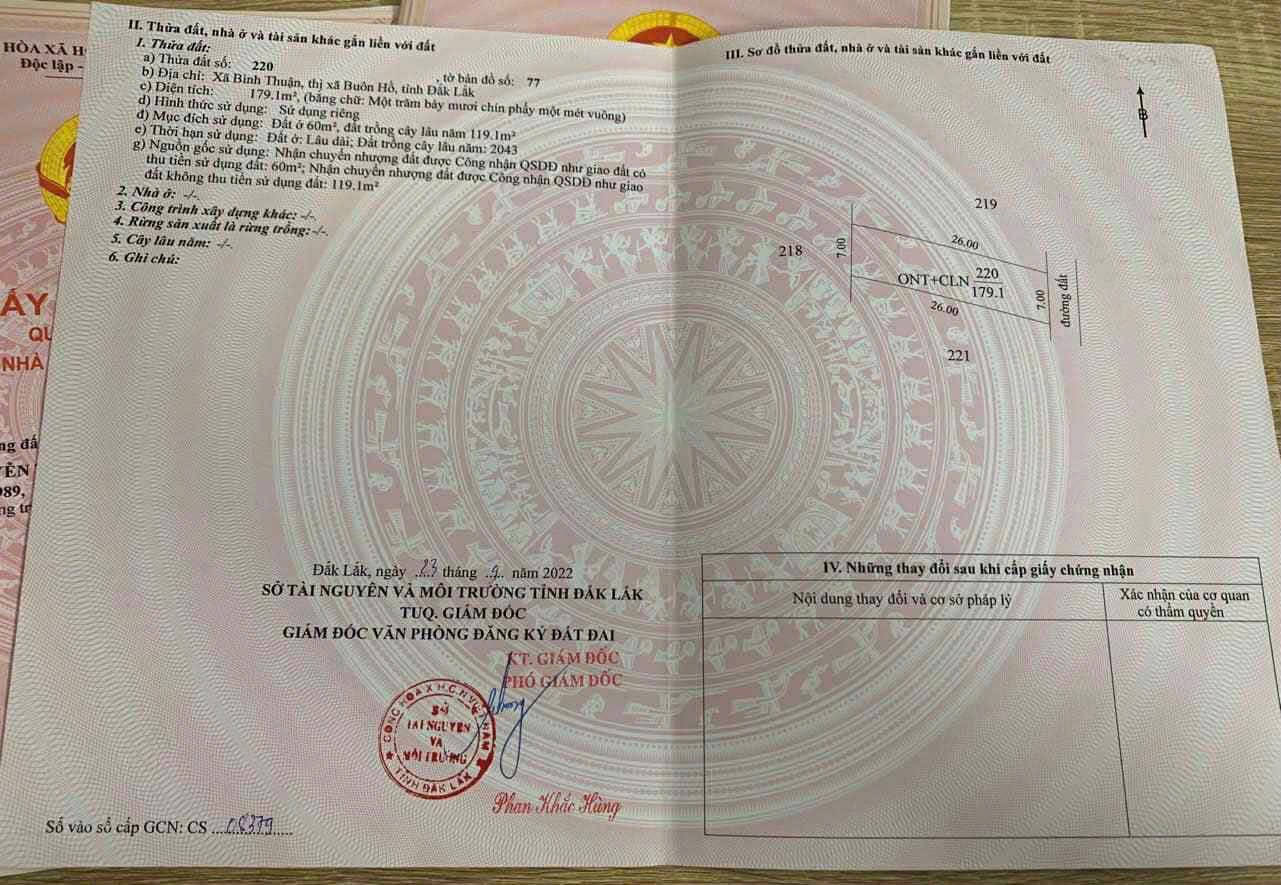 HÒA XÃ H
Độc lập -
II. Thửa đất, nhà ở và tài sản khác gắn liền với đất
1. Thửa đất:
a) Thửa đất số: 220 , tờ bản đồ số: 77
b) Địa chỉ: Xã Bình Thuận, thị xã Buôn Hồ, tỉnh Đắk Lắk
c) Diện tích: 179.1m², (bằng chữ: Một trăm bảy mươi chín phẩy một mét vuông)
d) Hình thức sử dụng: Sử dụng riêng
đ) Mục đích sử dụng: Đất ở 60m², đất trồng cây lâu năm 119.1m²
e) Thời hạn sử dụng: Đất ở: Lâu dài; Đất trồng cây lâu năm: 2043
g) Nguồn gốc sử dụng: Nhận chuyển nhượng đất được Công nhận QSDĐ như giao đất có
thu tiền sử dụng đất: 60m²; Nhận chuyển nhượng đất được Công nhận QSDĐ như giao
đất không thu tiền sử dụng đất: 119.1m²
2. Nhà ở: -/-.
3. Công trình xây dựng khác: -/-.
4. Rừng sản xuất là rừng trồng: -/-.
5. Cây lâu năm: -/-.
6. Ghi chú:
ẤY
QU
NHÀ
ng đấ
YÊN
989,
ng tr
III. Sơ đồ thửa đất, nhà ở và tài sản khác gắn liền với đất
B
219
218
7.00
26.00
ONT+CLN 220
179.1
26.00
7.00
đường đất
221
Đắk Lắk, ngày 23 tháng 9 năm 2022
SỞ TÀI NGUYÊN VÀ MÔI TRƯỜNG TỈNH ĐẮK LẮK
TUQ. GIÁM ĐỐC
GIÁM ĐỐC VĂN PHÒNG ĐĂNG KÝ ĐẤT ĐAI
KT. GIÁM ĐỐC
PHÓ GIÁM ĐỐC
CỘNG HÒA X.H.C.N VIỆT NAM
SỞ
TÀI NGUYÊN
VÀ
MÔI TRƯỜNG
TỈNH ĐẮK LẮK
Phan Khắc Hùng
Số vào sổ cấp GCN: CS 08379
IV. Những thay đổi sau khi cấp giấy chứng nhận
Nội dung thay đổi và cơ sở pháp lý
Xác nhận của cơ quan
có thẩm quyền